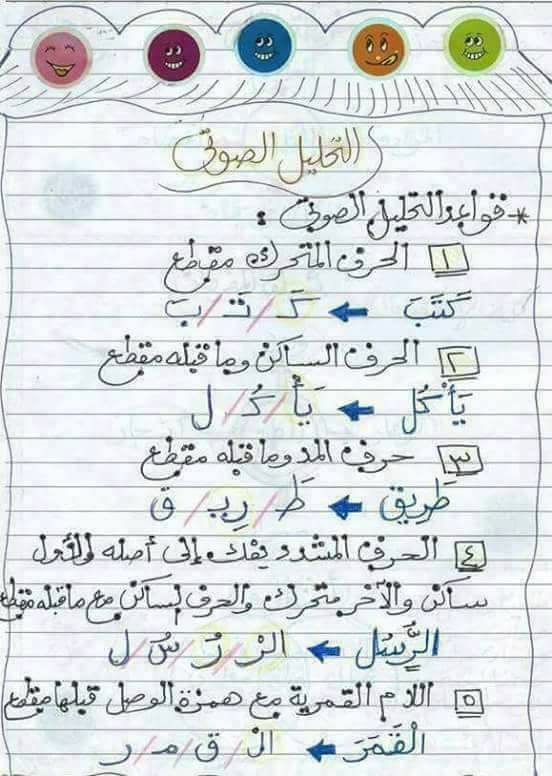 التحليل الصوتي
* قواعد التحليل الصوتي :
١ الحرف المتحرك مقطع
كَتَبَ ← كَـ / تَـ / بَ
٢ الحرف الساكن وما قبله مقطع
يَأْكُل ← يَأْ / كُـ / ل
٣ حرف المد وما قبله مقطع
طَرِيق ← طَـ / رِيـ / ق
٤ الحرف المشدد يفك إلى أصله والأول
ساكن والآخر متحرك والحرف الساكن مع ما قبله مقطع
الرُّسُل ← الرْ / رُ / سُ / ل
٥ اللام القمرية مع همزة الوصل قبلها مقطع
الْقَمَرَ ← الْ / ق / مـ / ر